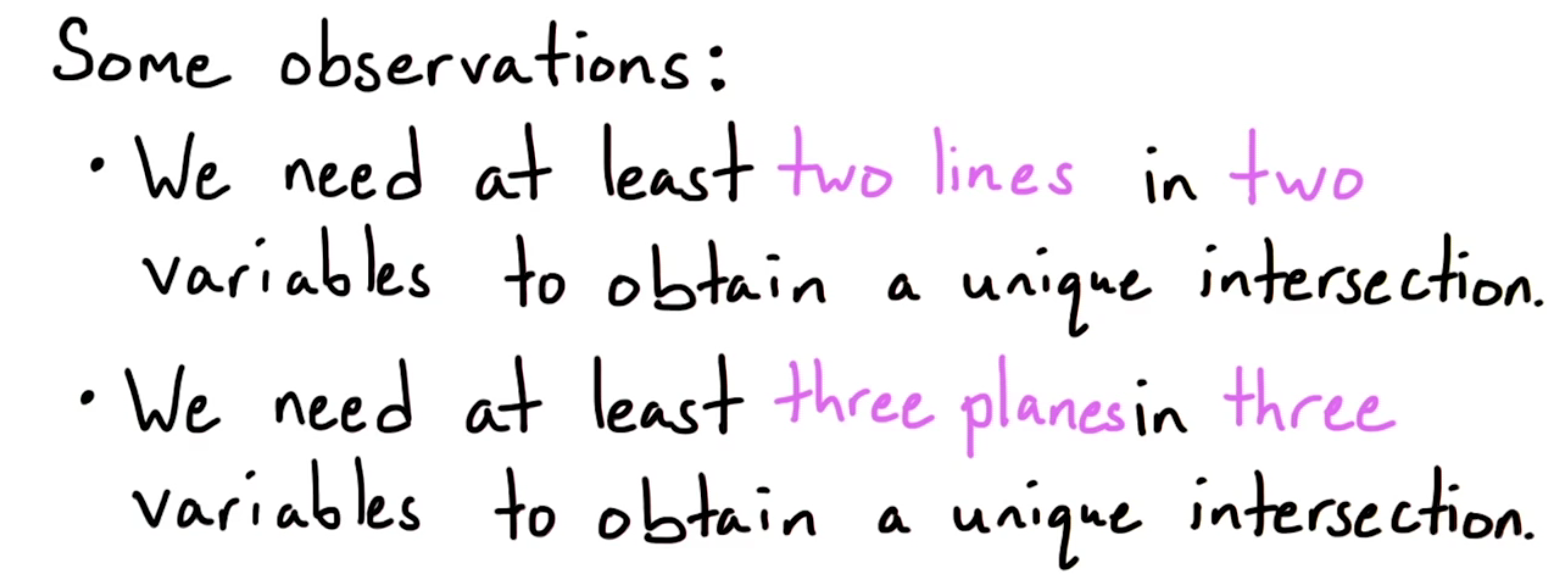 Some observations:
• We need at least two lines in two
variables to obtain a unique intersection.
• We need at least three planes in three
variables to obtain a unique intersection.